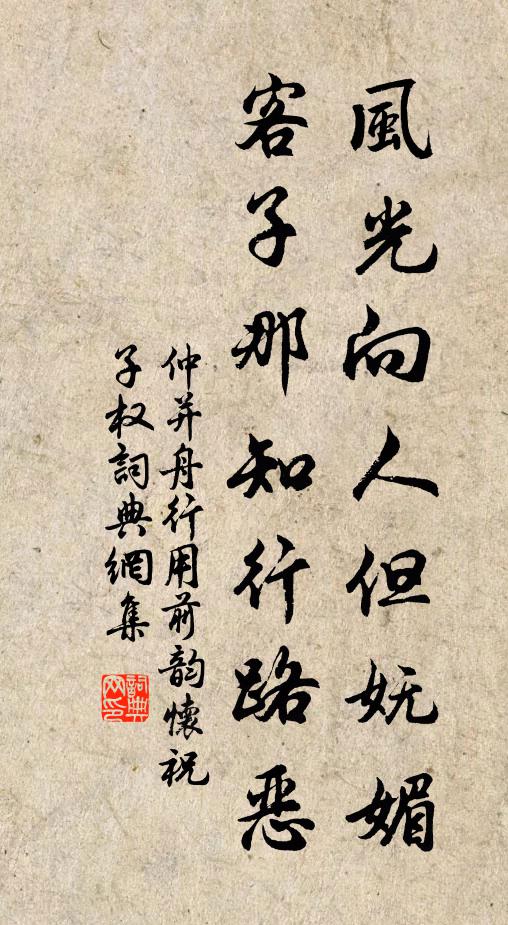 風光向人但妩媚
客子那知行路惡
仲并舟行用前韵懷祝
子权詞典網集
詞典
网印